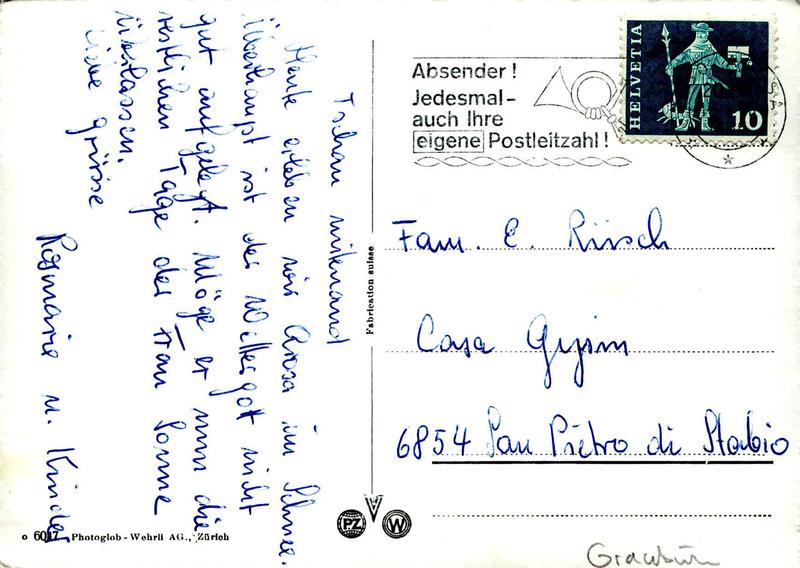 Tschau mitenand
Heute erleben wir Arosa im Schnee.
Überhaupt ist der Wettergott nicht
gut aufgelegt. Möge er nun die
restlichen Tage der Frau Sonne
überlassen.
Liebe Grüsse
Rosmarie u. Kinder
o 6017 Photoglob-Wehrli AG., Zürich
Fabrication suisse
PZ
W
Absender!
Jedesmal-
auch Ihre
eigene Postleitzahl!
HELVETIA
10
Fam. E. Rüsch
Casa Gysin
6854 San Pietro di Stabio